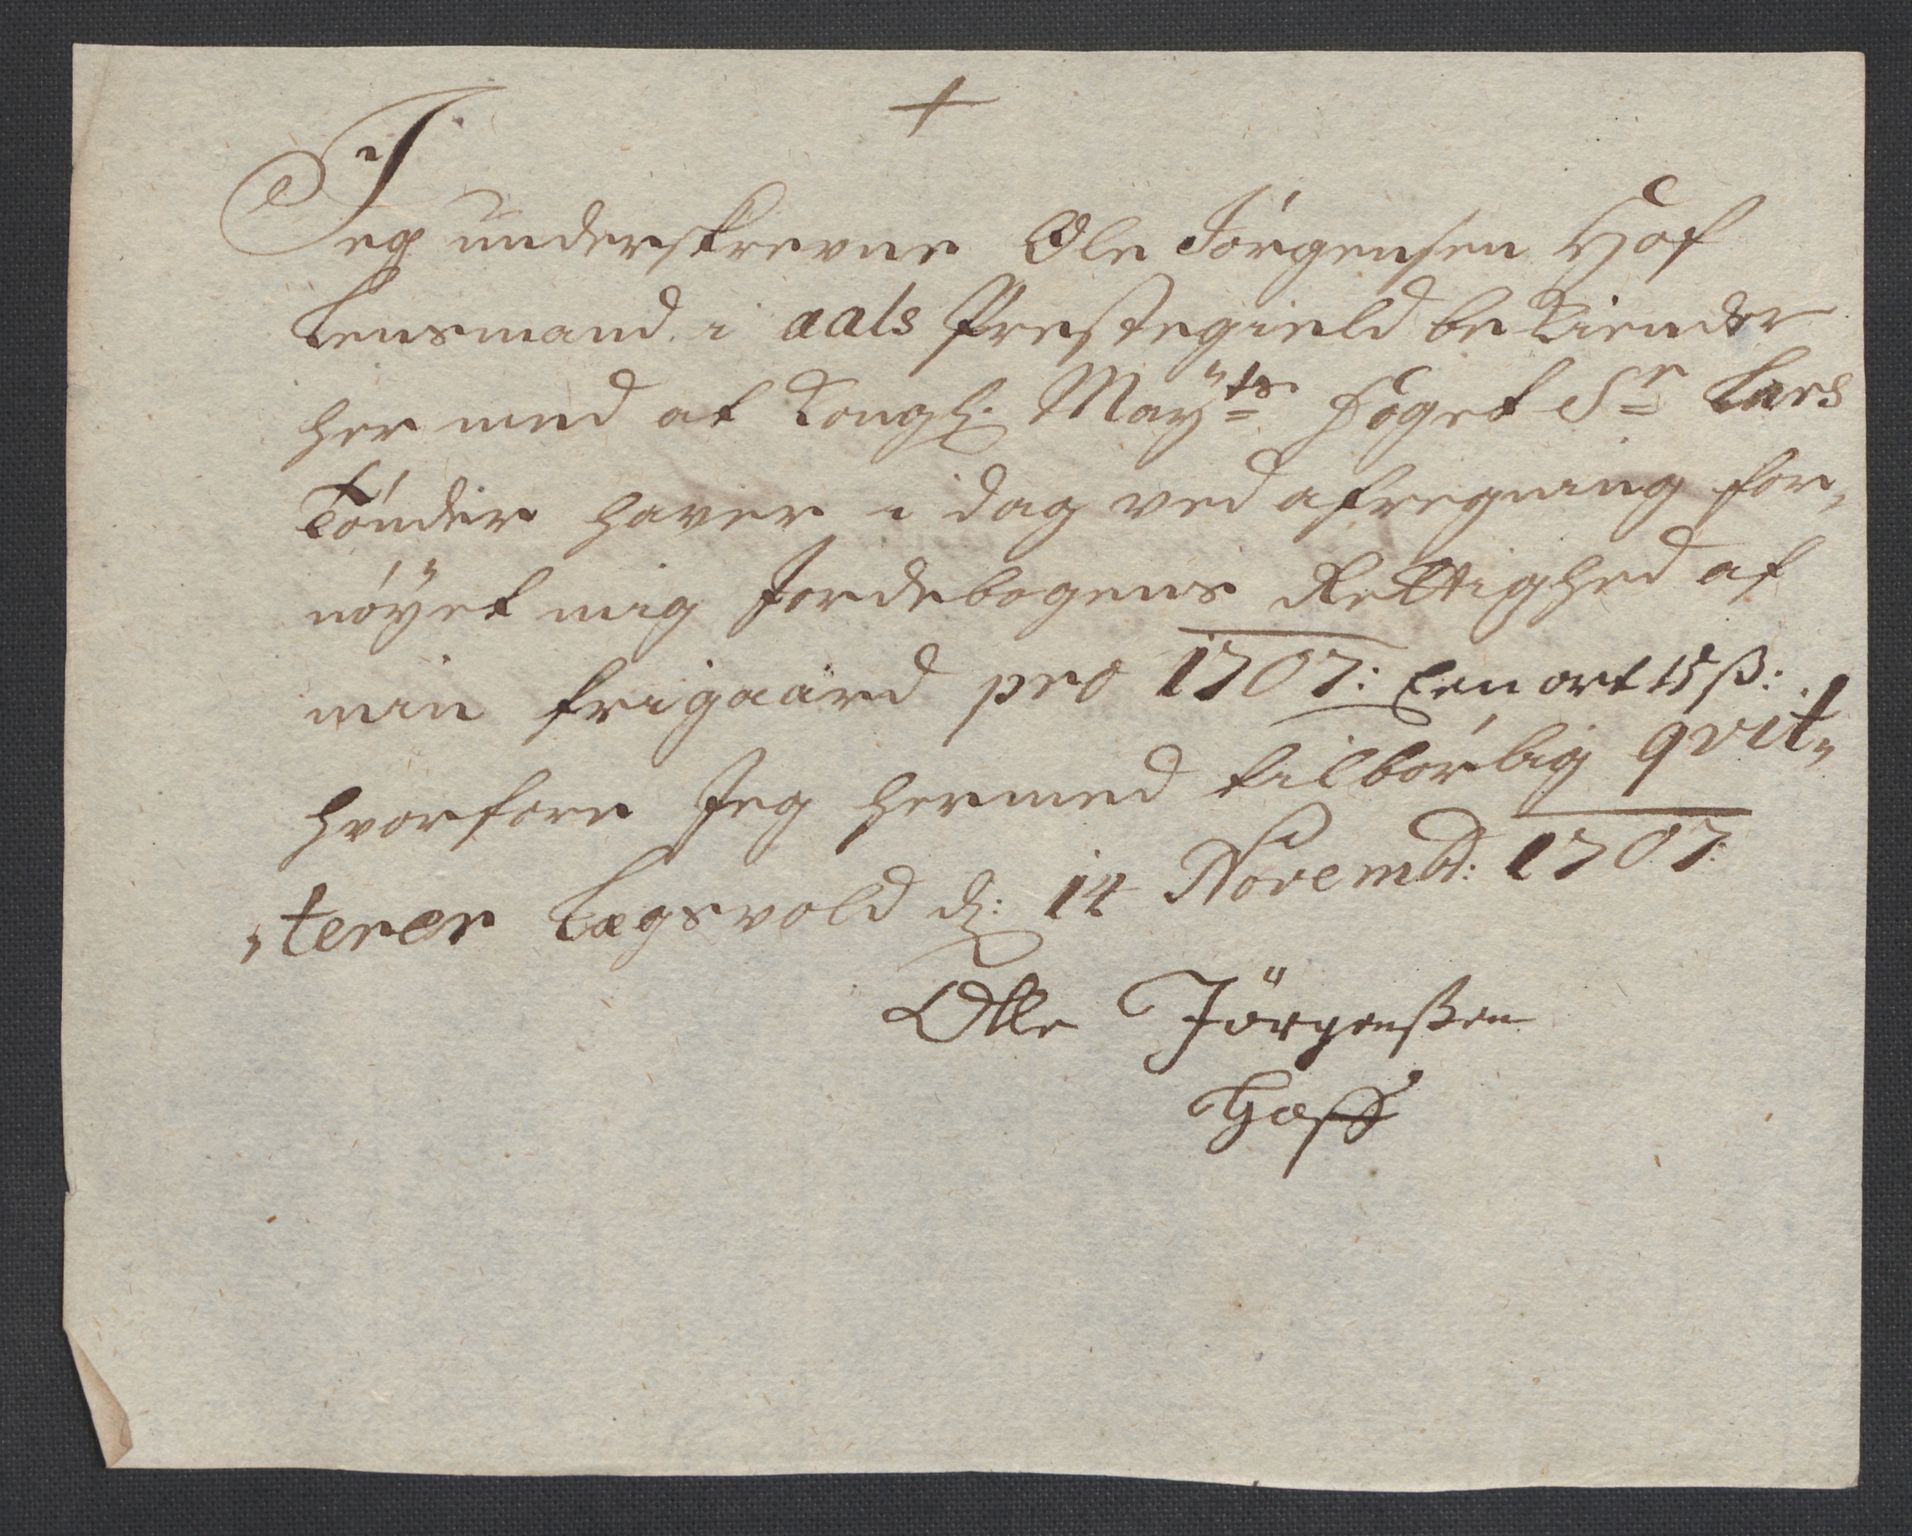 +
Jeg underskrevne Ole Jörgensen Hof
Lensmand i aals Prestegield be kiender
her med at Kongl: Mayts foget Sr Lars
Tönder haver i dag ved afregning for,
nöyet mig Jordebogens Rettighed af
min frigaard pro 1707: Een ort 15 ß:
hvorfore Jeg hermed tilbörlig qvit,,
,,terer Lægsvold d: 14 Novembr: 1707:
Olle Jörgenßen
Hoff